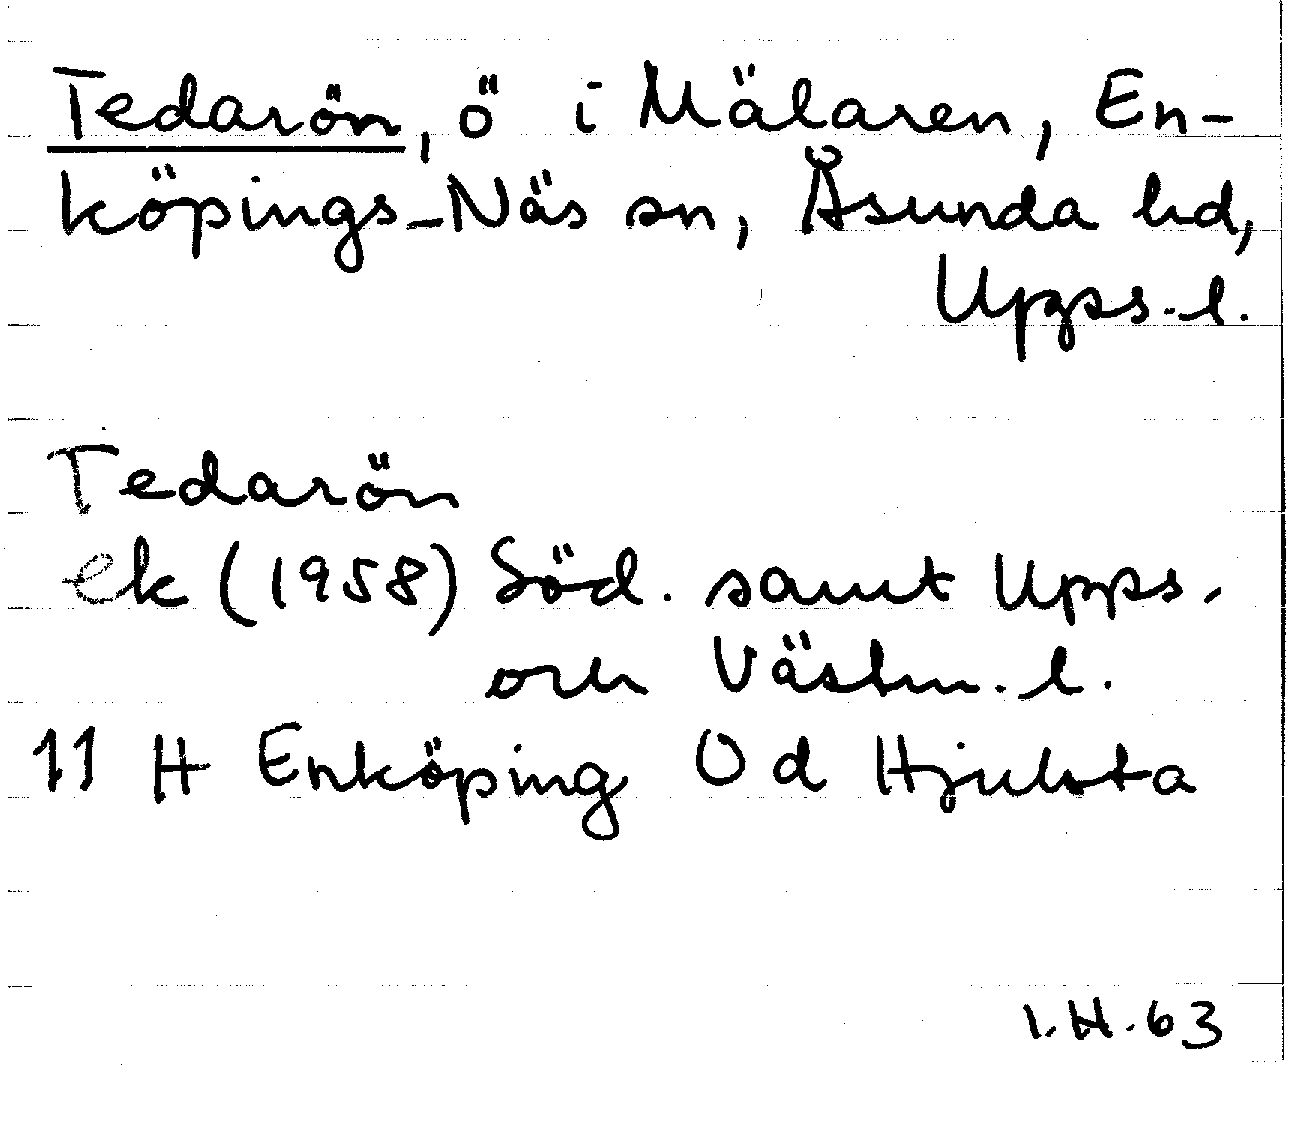 Tedarön, ö i Mälaren, En-
köpings-Näs sn, Åsunda hd,
Upps. l.
Tedarön
ek (1958) Söd. samt Upps.
och Västm. l.
11 H Enköping Od Hjulsta
I.H. 63